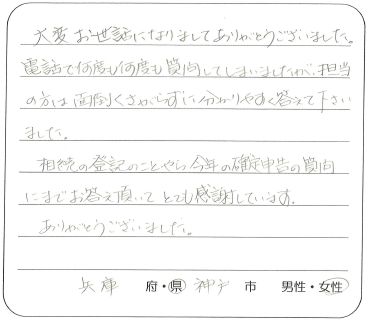 大変お世話になりましてありがとうございました。
電話で何度も何度も質問してしまいましたが、担当
の方は面倒くさがらずに分かりやすく答えて下さい
ました。
相続の登記のことやら今年の確定申告の質問
にまでお答え頂いてとても感謝しています。
ありがとうございました。
兵庫 府・県 神戸 市 男性・女性